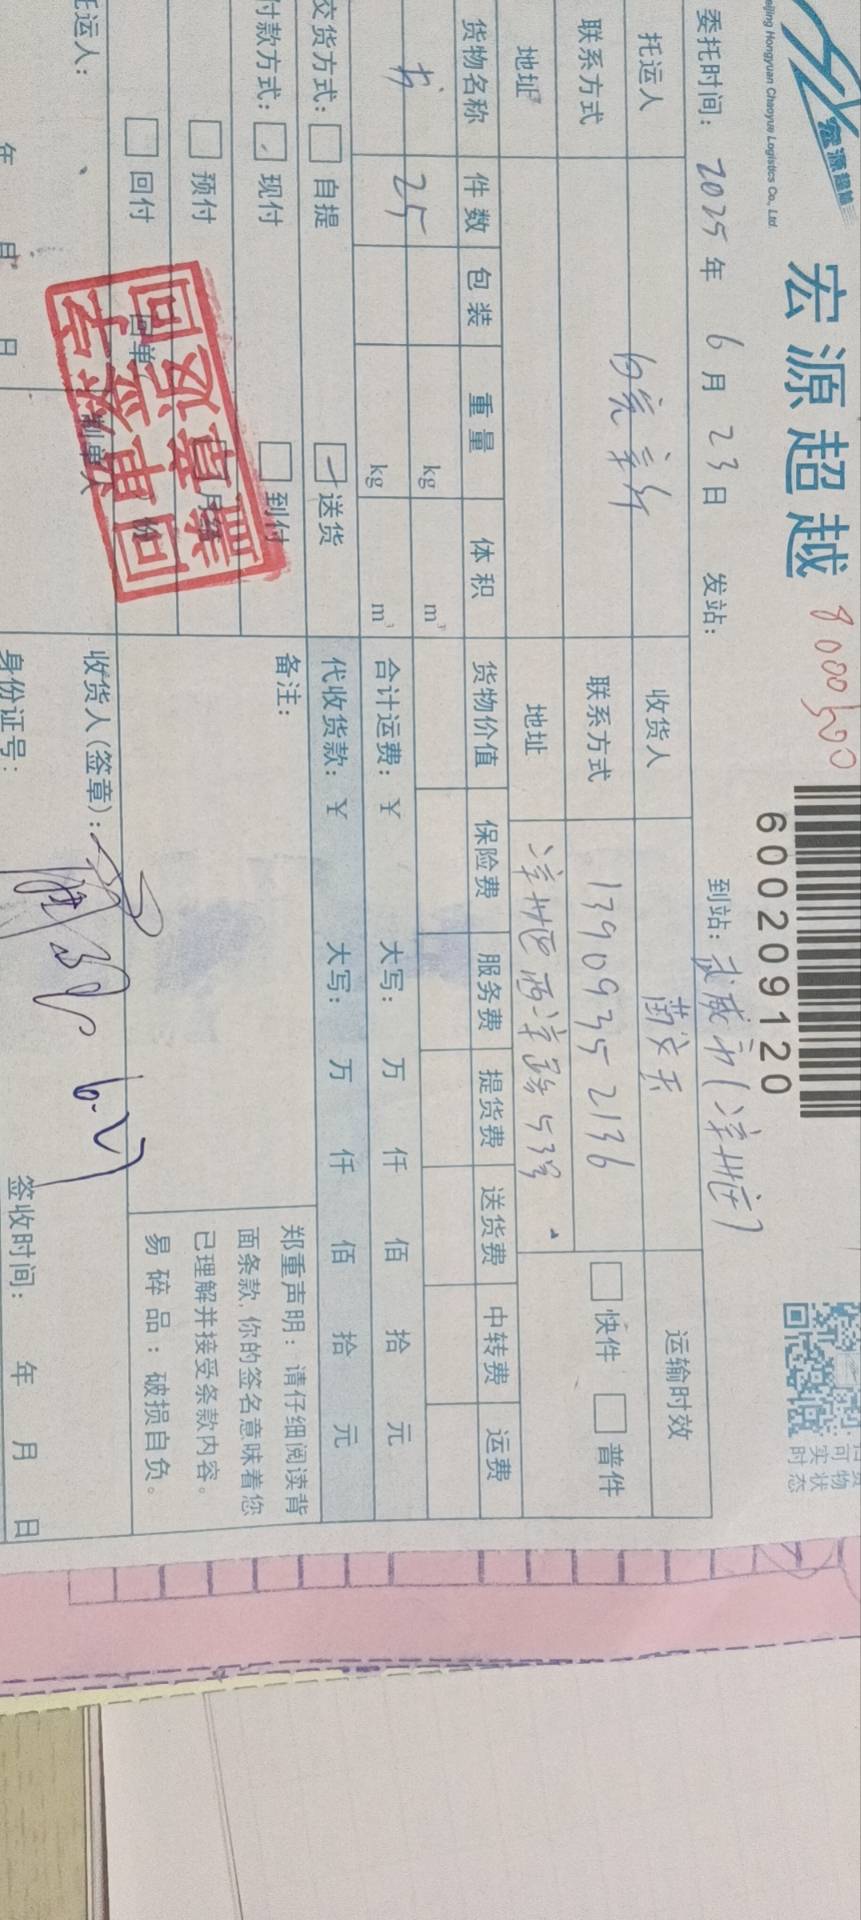 宏源超越
eijing Hongyuan Chaoyue Logistics Co., Ltd.
宏源超越 8000500
600209120
可 物
实 状
时 态
委托时间: 2025年 6月 23日 发站: 到站: 武威市(凉州区)
托运人 收货人 运输时效
联系方式 联系方式 13909352136 快件 普件
地址 地址 凉州区西凉路53号
货物名称 件数 包装 重量 体积 货物价值 保险费 服务费 提货费 送货费 中转费 运费
书 25 kg m³
kg m³ 合计运费: ¥ 大写: 万 仟 佰 拾 元
交货方式: 自提 送货 代收货款: ¥ 大写: 万 仟 佰 拾 元
付款方式: 现付 到付 备注:
预付 月结
回付 回单 份
郑重声明: 请仔细阅读背
面条款,你的签名意味着您
已理解并接受条款内容。
易碎品: 破损自负。
托运人: 制单人 收货人(签章):
年 月 日 身份证号: 签收时间: 年 月 日